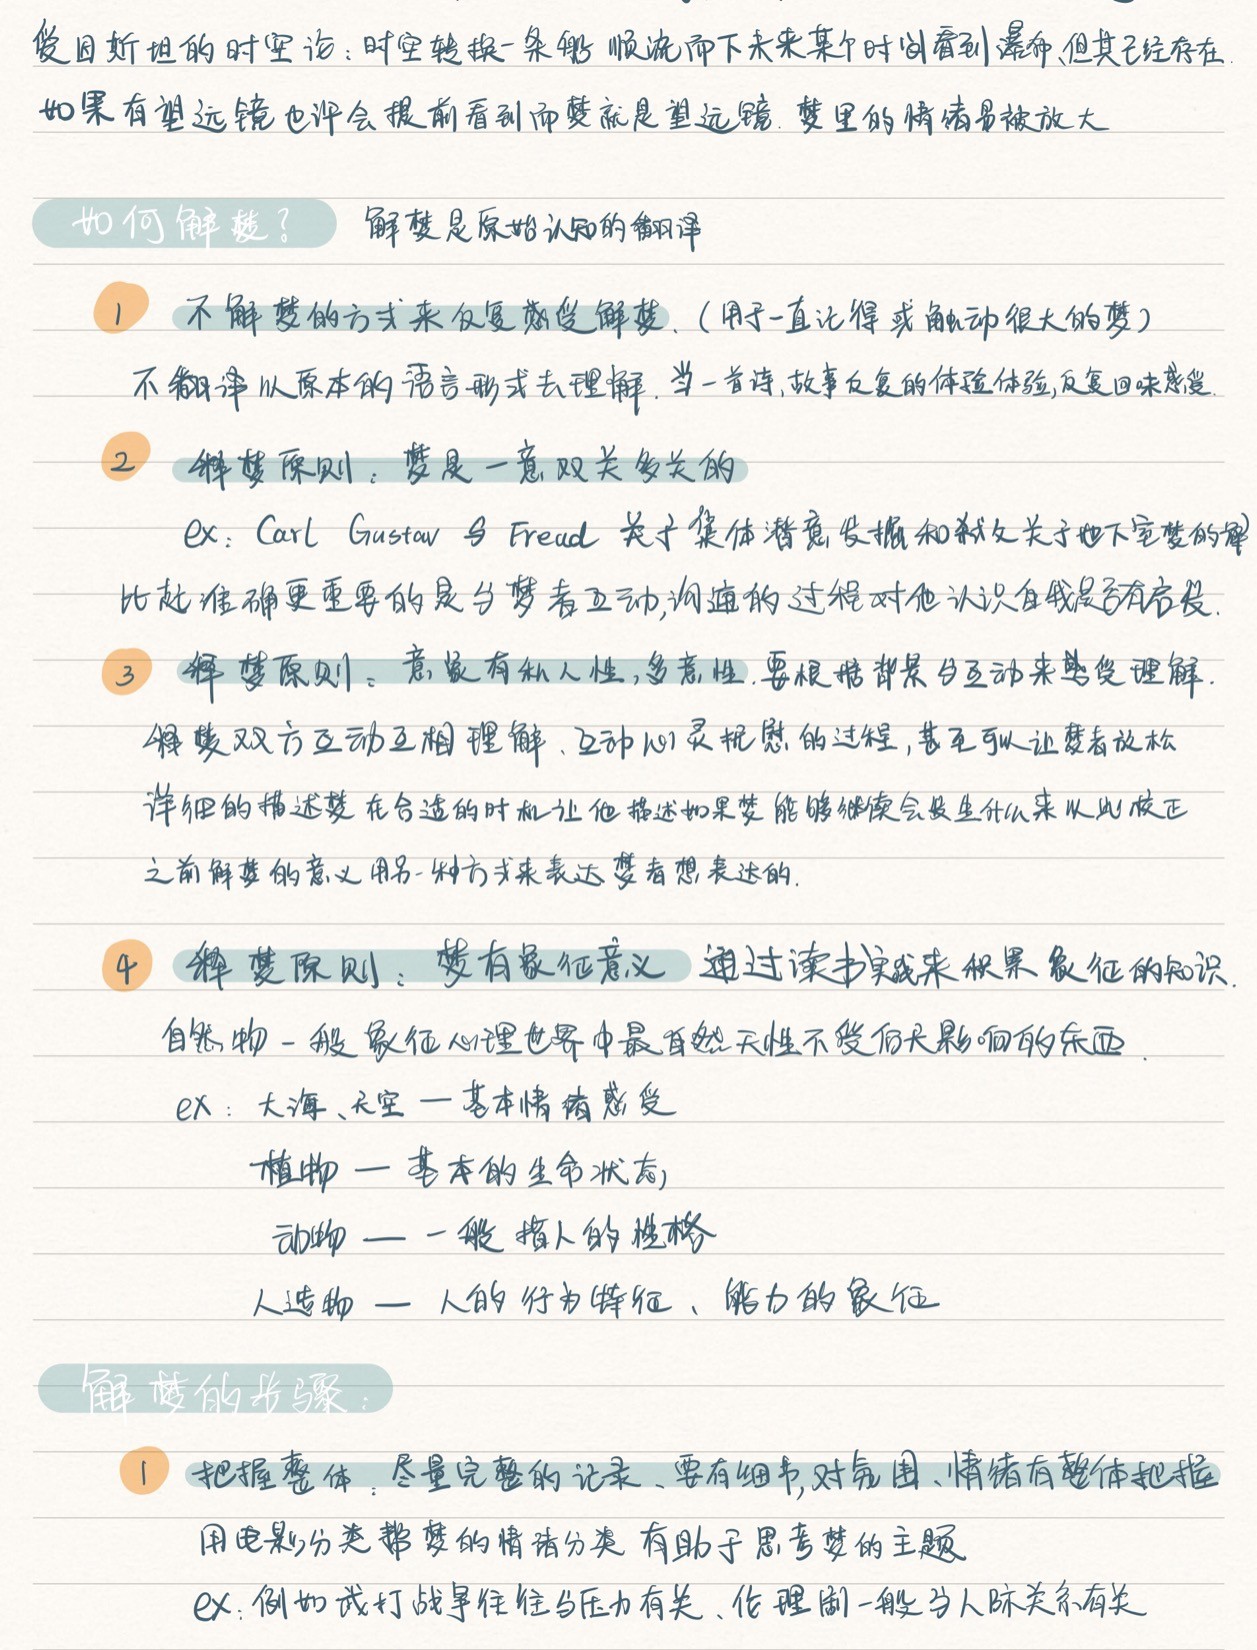 爱因斯坦的时空论：时空转换一条船 顺流而下未来某个时间看到瀑布、但其已经存在.
如果有望远镜也许会提前看到而梦就是望远镜. 梦里的情绪易被放大
如何解梦? 解梦是原始认知的翻译
1 不解梦的方式来反复感受解梦.（用于一直记得或触动很大的梦）
不翻译以原本的语言形式去理解. 当一首诗、故事反复的体验体验,反复回味感受.
2 释梦原则：梦是一意双关多关的
ex: Carl Gustav 与 Freud 关于集体潜意发掘和弑父关于地下室梦的解
比起准确更重要的是与梦者互动,沟通的过程对他认识自我是否有启发.
3 释梦原则：意象有私人性,多意性.要根据背景与互动来感受理解.
释梦双方互动互相理解、互动心灵抚慰的过程,甚至可以让梦者放松
详细的描述梦在合适的时机让他描述如果梦能够继续会发生什么来以此校正
之前解梦的意义用另一种方式来表达梦者想表达的.
4 释梦原则：梦有象征意义 通过读书实践来积累象征的知识.
自然物一般象征心理世界中最自然天性不受后天影响的东西.
ex：大海、天空 — 基本情绪感受
植物 — 基本的生命状态,
动物 — 一般指人的性格
人造物 — 人的行为特征、能力的象征
解梦的步骤：
1 把握整体：尽量完整的记录、要有细节,对氛围、情绪有整体把握
用电影分类帮梦的情绪分类 有助于思考梦的主题
ex：例如武打战争往往与压力有关、伦理剧一般与人际关系有关